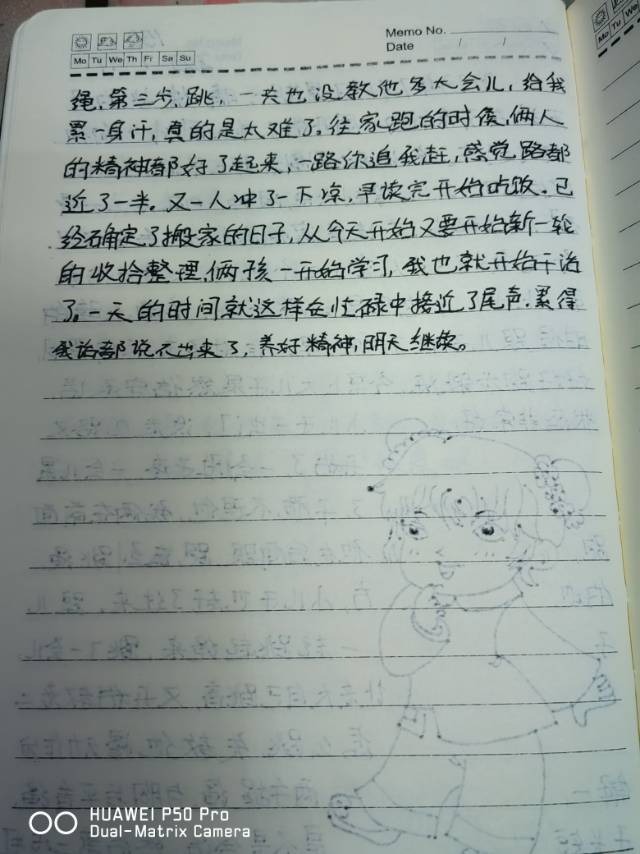 Memo No.
Date / /
Mo Tu We Th Fi Sa Su
绳,第三步,跳,一共也没教他多大会儿,给我
累一身汗,真的是太难了。往家跑的时候,俩人
的精神都好了起来,一路你追我赶,感觉路都
近了一半。又一人冲了一下凉,早读完开始吃饭。已
经确定了搬家的日子,从今天开始又要开始新一轮
的收拾整理,俩孩一开始学习,我也就开始干活
了。一天的时间就这样在忙碌中接近了尾声。累得
我话都说不出来了,养好精神,明天继续。
HUAWEI P50 Pro
Dual-Matrix Camera